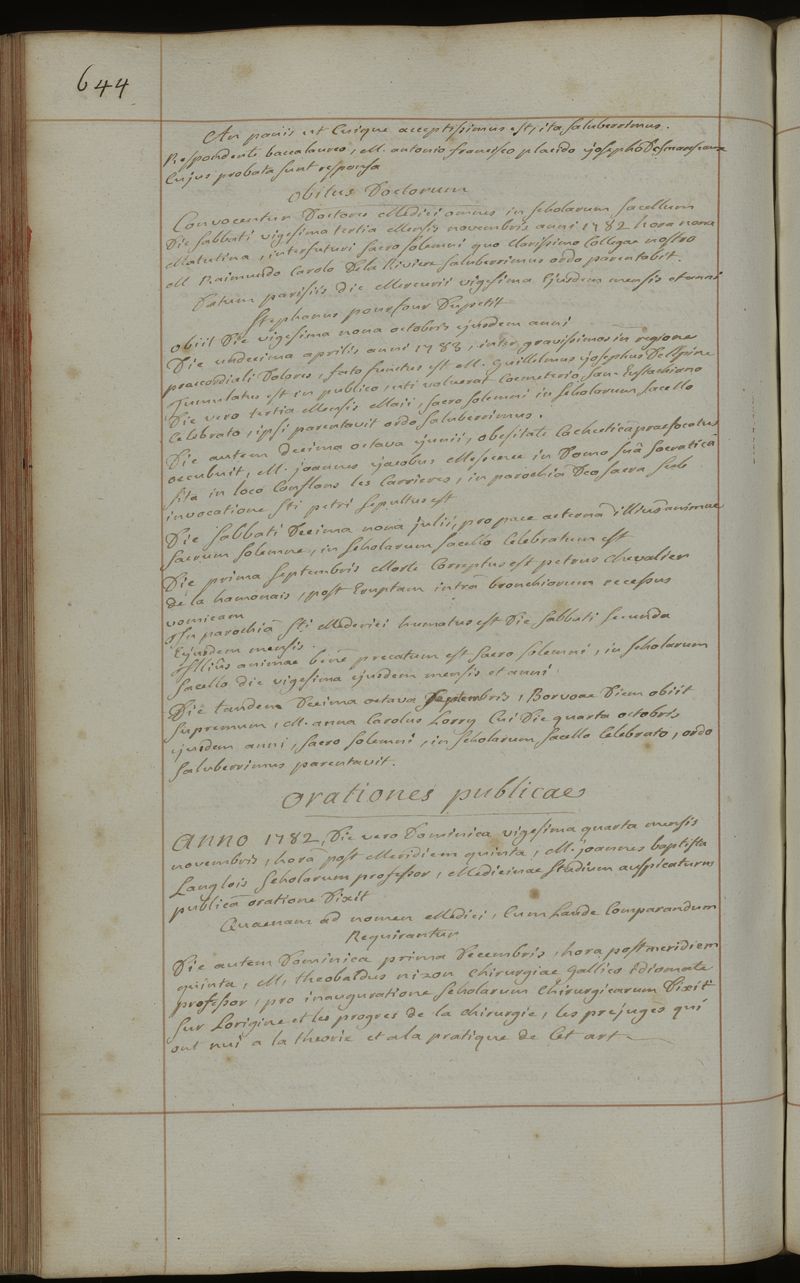 644
An panis ut Cuique acceptissimus est, ita saluberrimus.
Respondente baccalaureo, M. antonio francisco placido josepho
Cujus probata sunt responsa
obitus Doctorum
Convocentur Doctores Medici omnes in scholarum sacellum
Die sabbati vigesima tertia Mensis novembris anni 1782 hora nona
Matutina, interfuturi sacro solemni quo clarissimo Collegae nostro
M Raimundo Carolo De la Riviere saluberrimus ordo parentabit.
Datum parisiis die Mercurii vigesima Ejusdem mensis et anni
Stephanus pourfour Dupetit
obiit Die vigesima nona octobris ejusdem anni
Die undecima aprilis anni 1783, inter gravissimos in regione
praecordiali Dolores, fato functus est M. Guillelmus josephus De l'Epine
Tumulatus est in publico, uti voluerat Coemeterio, San-Eustachiano
Die vero tertia Mensis Maii, sacro solemni in scholarum sacello
Celebrato, ipsi parentavit ordo saluberrimus.
Die autem Decima octava junii, obesitate Cachecticâ praefocatus
occubuit, M. joannes jacobus Messence in Domo suâ Socraticâ
sita in loco Conflans les Carrieres, in parochiâ Deo sacra sub
invocatione Sti petri sepultus est
Die sabbati Decima nona julii, pro pace aeternâ illius animae
sacrum solemne, in scholarum sacello Celebratum est
Die prima septembris Morte Correptus est petrus Chevalier
de la hamonais, post Eruptam intrâ bronchiorum recessus
vomicam
In parochiâ Sti Mederici humatus est Die sabbati secunda
Ejusdem mensis.
Illius animae bene precatum est sacro solemni, in scholarum
sacello die vigesima ejusdem mensis et anni
Die tandem Decima octava septembris, Borvoae Diem obiit
supremum, M. anna Carolus Lorry Cui Die quarta octobris
ejusdem anni, sacro solemni, in scholarum sacello Celebrato, ordo
saluberrimus parentavit.
orationes publicae
Anno 1782, Die vero Dominica vigesima quarta mensis
novembris, horâ post Meridiem quinta, M. joannes baptista
Langlois Scholarum professor, Medicinae studium auspicaturus
publicâ oratione Dixit
Quaenam ad nomen Medici, Cum Laude Comparandum
Requirantur
Die autem Dominica prima Decembris, hora post meridiem
quinta, M, theobaldus nizon Chirurgiae gallico idiomate
professor, pro inauguratione scholarum Chirurgicarum Dixit
sur Lorigine et les progres de la chirurgie, les prejuges qui
ont nui a la theorie et a la pratique de Cet art